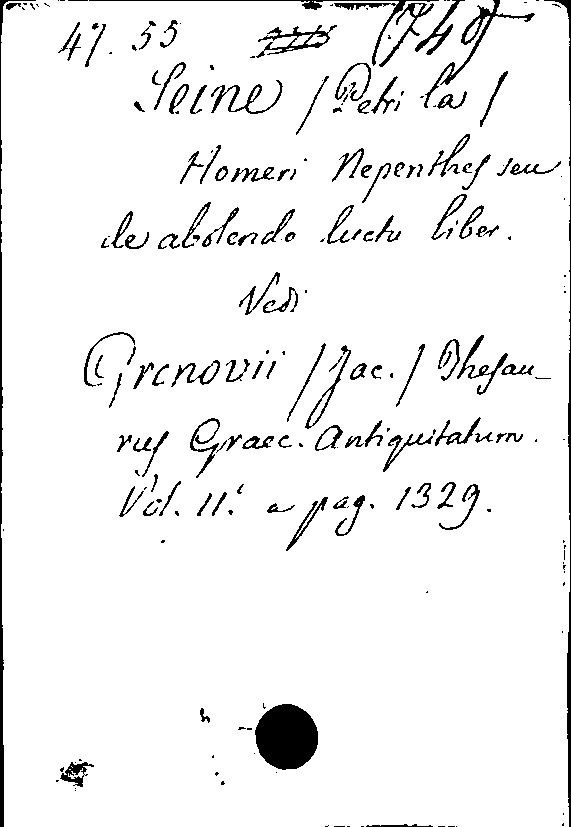 47. 55 (740)
Seine /Petri la/
Homeri Nepenthes seu
de abolendo luctu liber.
Vedi
Gronovii /Jac./ Thesau-
rus Graec. Antiquitatum.
Vol. 11.' a pag. 1329.